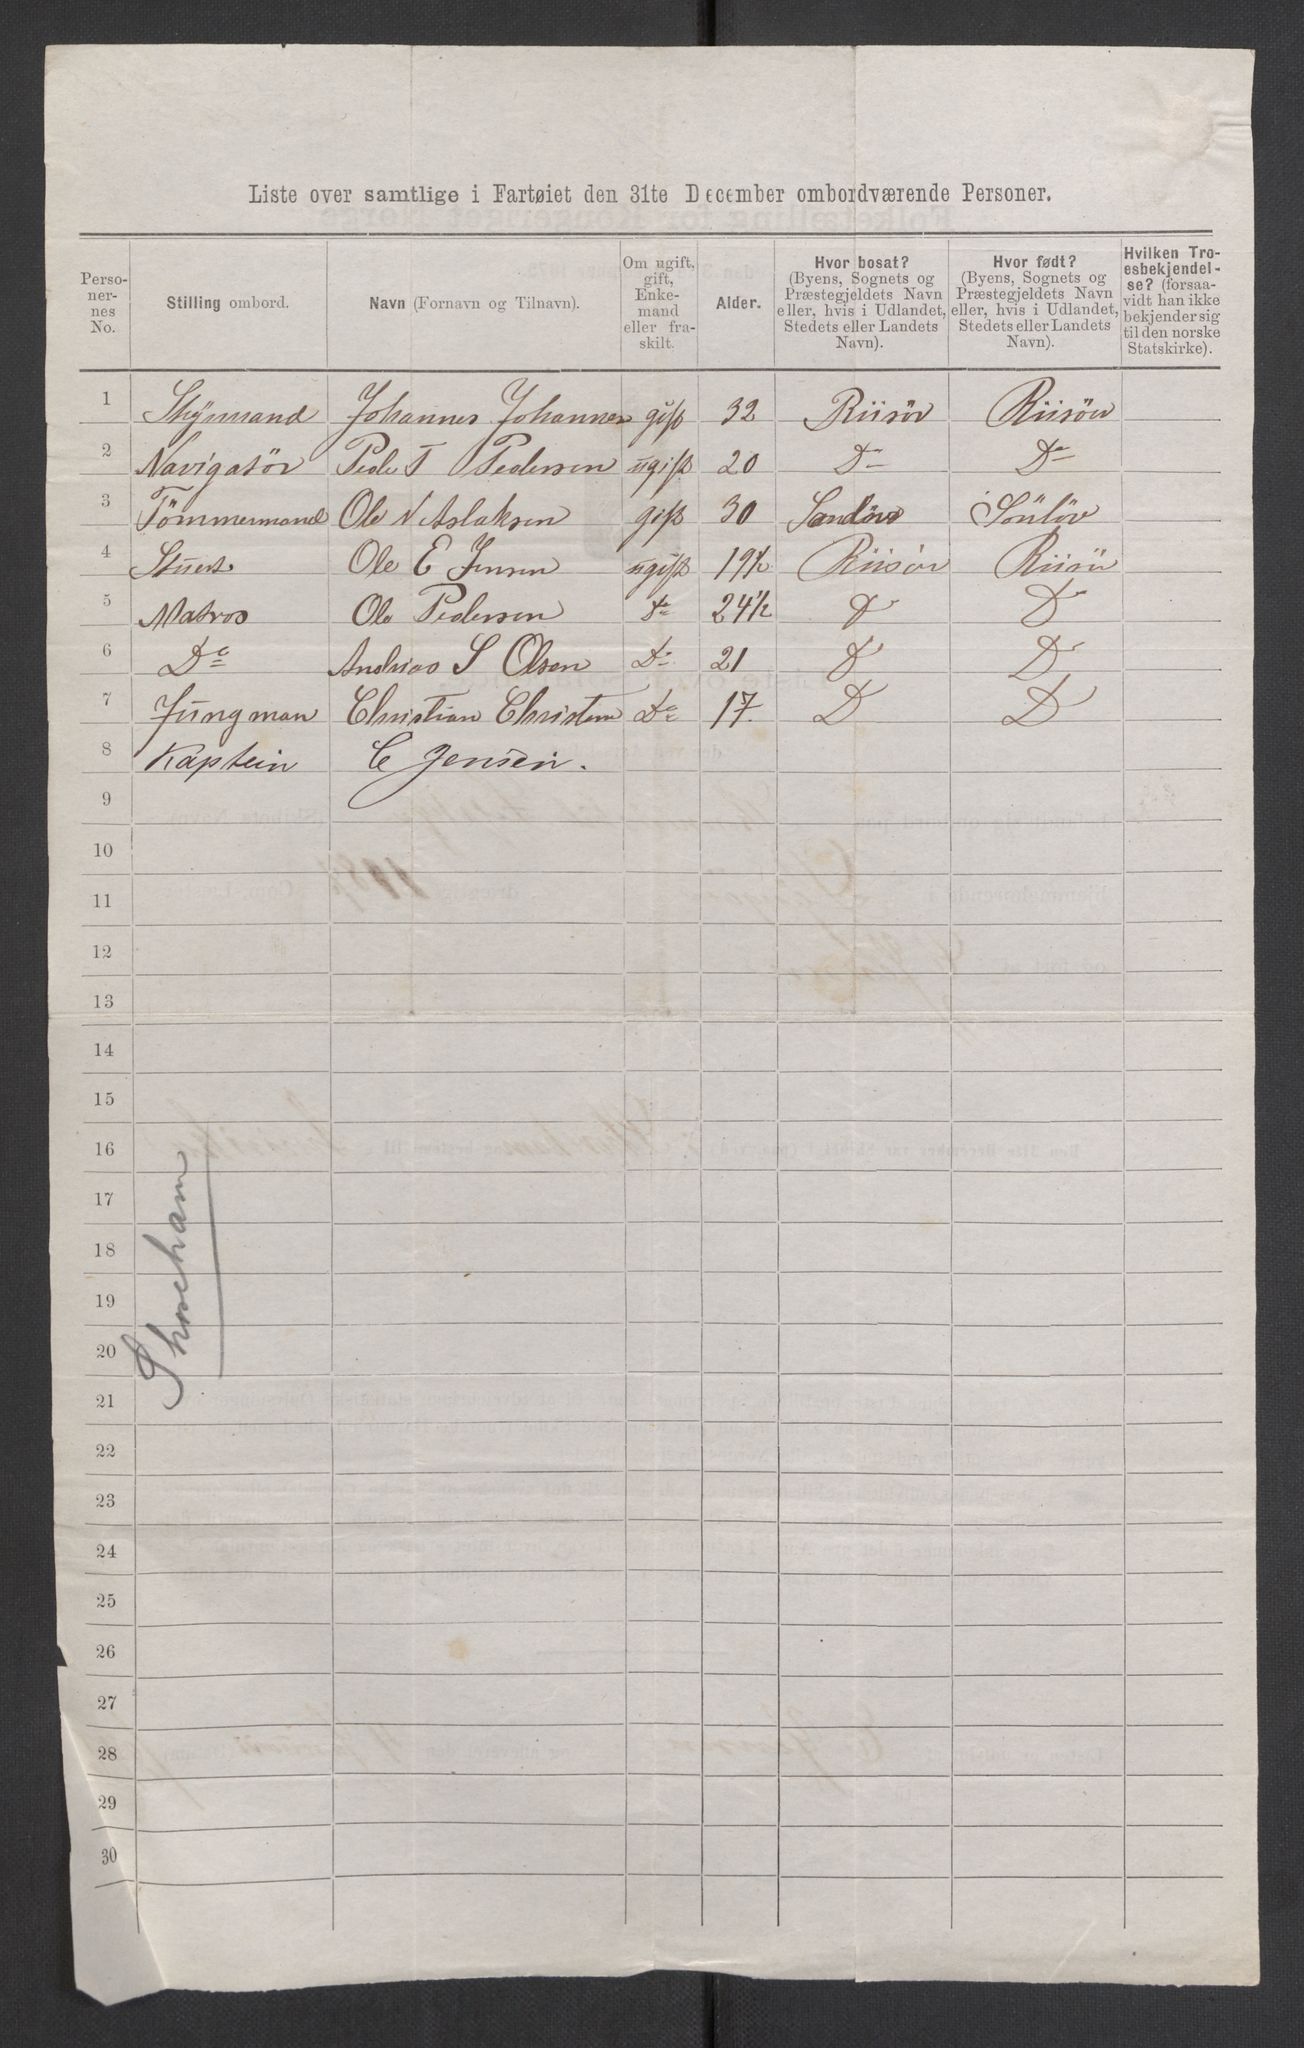 Liste over samtlige i Fartøiet den 31te December ombordværende Personer.
Perso-
ner-
nes
No.
Stilling ombord.
Navn (Fornavn og Tilnavn).
Om ugift,
gift,
Enke-
mand
eller fra-
skilt.
Alder.
Hvor bosat?
(Byens, Sognets og
Præstegjeldets Navn
eller, hvis i Udlandet,
Stedets eller Landets
Navn).
Hvor født?
(Byens, Sognets og
Præstegjeldets Navn
eller, hvis i Udlandet,
Stedets eller Landets
Navn).
Hvilken Tro-
esbekjendel-
se? (forsaa-
vidt han ikke
bekjender sig
til den norske
Statskirke).
1 Stÿrmand Johannes Johannes gift 32 Riisör Riisör
2 Navigatör Peder T Pedersen ugift 20 Do Do
3 Tömmermand Ole N Aslaksen gift 30
4 Stuert Ole E Jensen ugift 19½ Riisör Riisör
5 Matros Ole Pedersen Do 24½ D D
6 Do Andreas S Olsen Do 21 D D
7 Jungman Christian Christens Do 17 D D
8 Kaptein C Jensen.
9
10
11
12
13
14
15
16
17
18
19
20
21
22
23
24
25
26
27
28
29
30
Shoreham